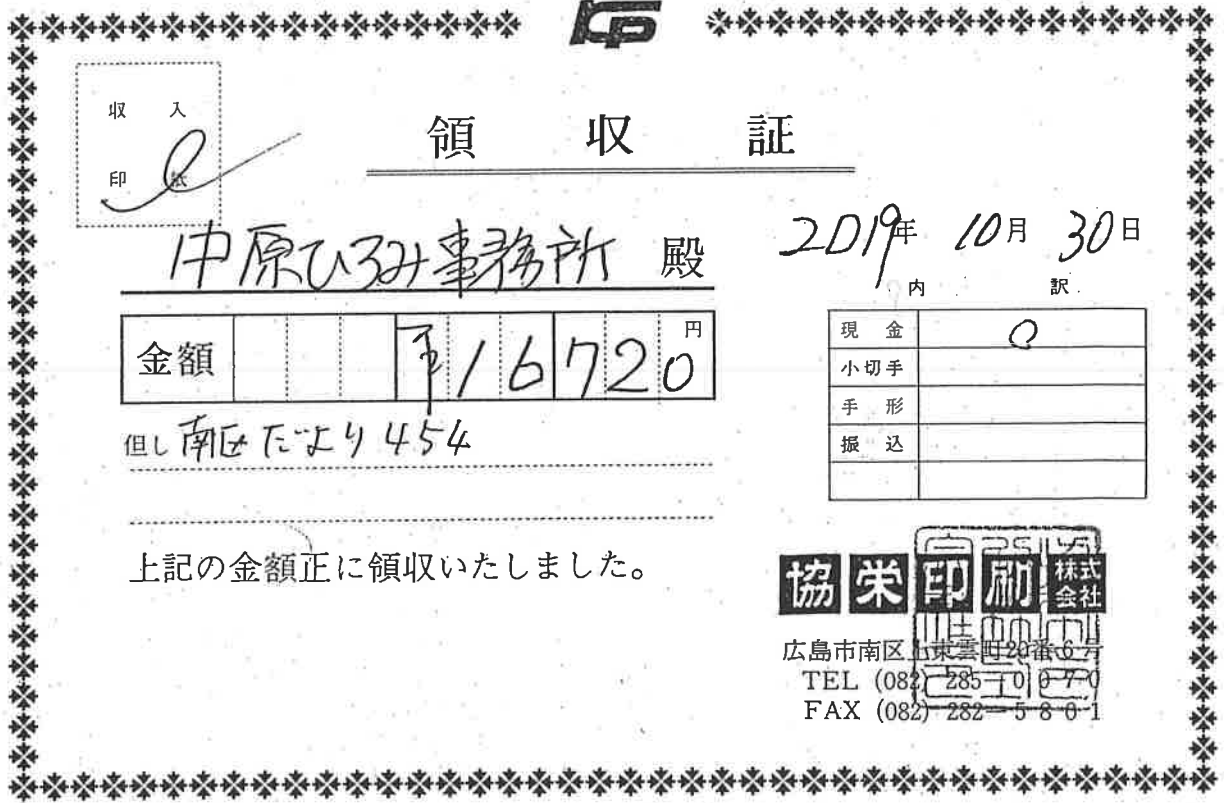 収入
印紙
領収証
中原ひろみ事務所 殿
2019年 10月 30日
内訳
金額 ¥16720円
現金 ○
小切手
手形
振込
但し 南区だより 454
上記の金額正に領収いたしました。
協栄印刷株式会社
広島市南区上東雲町20番6号
TEL (082) 285-0070
FAX (082) 282-5801